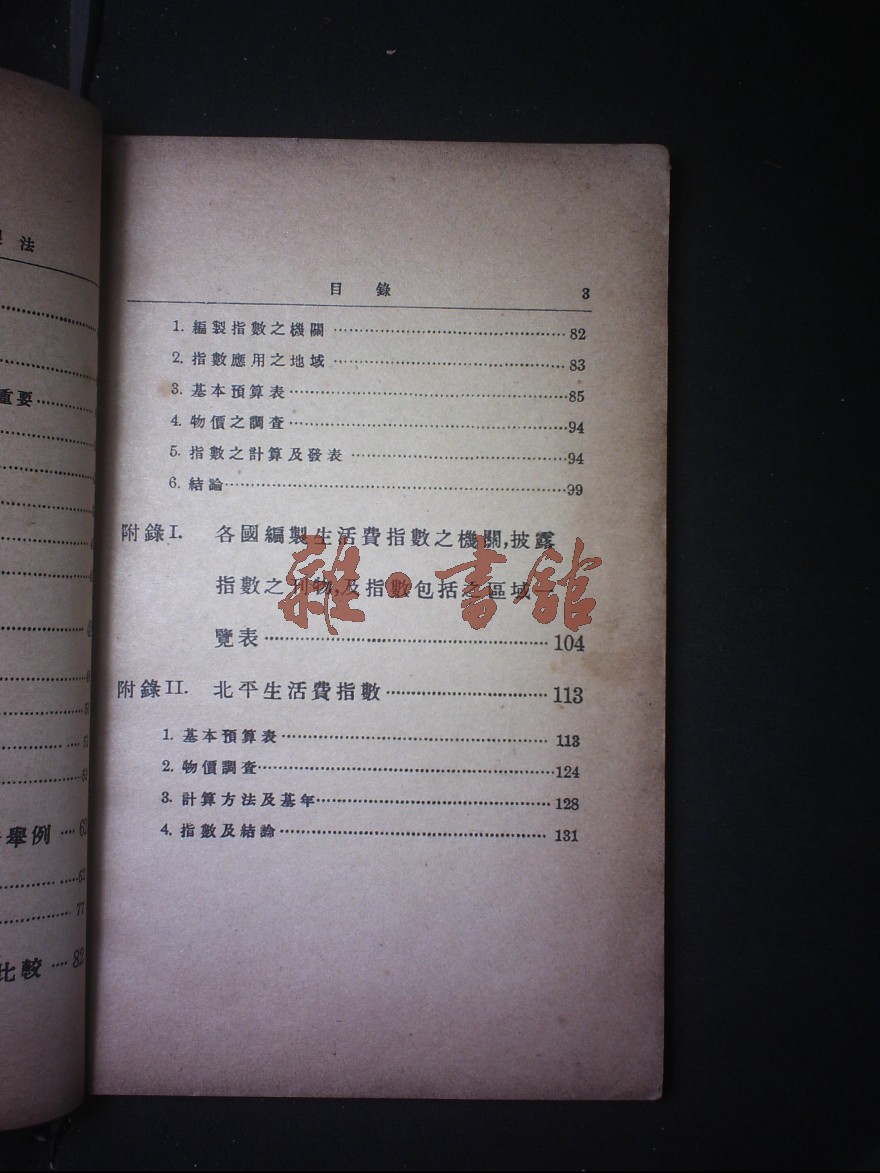 法
重要
舉例 ···· 62
77
比較 ···· 82
目錄 3
1. 編製指數之機關 ·························· 82
2. 指數應用之地域 ·························· 83
3. 基本預算表 ·························· 85
4. 物價之調查 ·························· 94
5. 指數之計算及發表 ·························· 94
6. 結論 ·························· 99
附錄I. 各國編製生活費指數之機關,披露
指數之刊物,及指數包括之區域一
覽表 ·························· 104
附錄II. 北平生活費指數 ·························· 113
1. 基本預算表 ·························· 113
2. 物價調查 ·························· 124
3. 計算方法及基年 ·························· 128
4. 指數及結論 ·························· 131
雜·書館